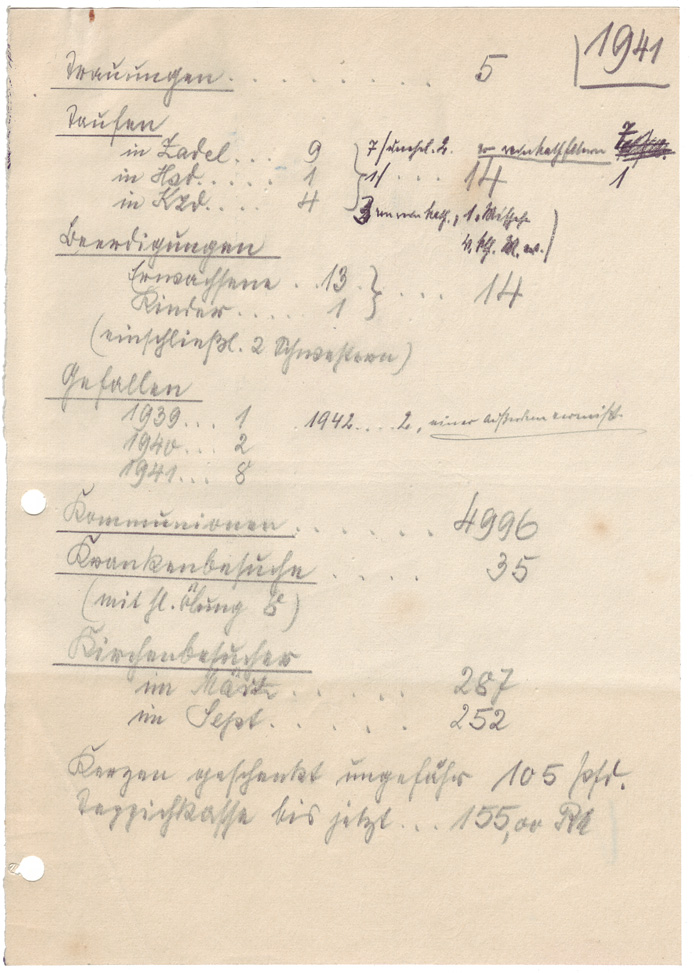 1941
Trauungen . . . . . . . . 5
Taufen
in Zadel . . . 9 7 unehel. 2. 7
in Hzd. . . . . 1 1 . . . . 14 1
in Kzd. . . . 4 3 1. Mischehe
Beerdigungen
Erwachsene . . 13
Kinder . . . . . 1 . . . . 14
(einschließl. 2 Schwestern)
Gefallen
1939 . . . 1 1942 . . . . 2, einer außerdem vermißt.
1940 . . . 2
1941 . . . 8
Kommunionen . . . . . . 4996
Krankenbesuche . . . . . 35
(mit hl. Ölung 8)
Kirchenbesucher
im März . . . . . . 287
im Sept. . . . . . 252
Kerzen geschenkt ungefähr 105 Pfd.
Teppichkasse bis jetzt . . . 155,00 RM